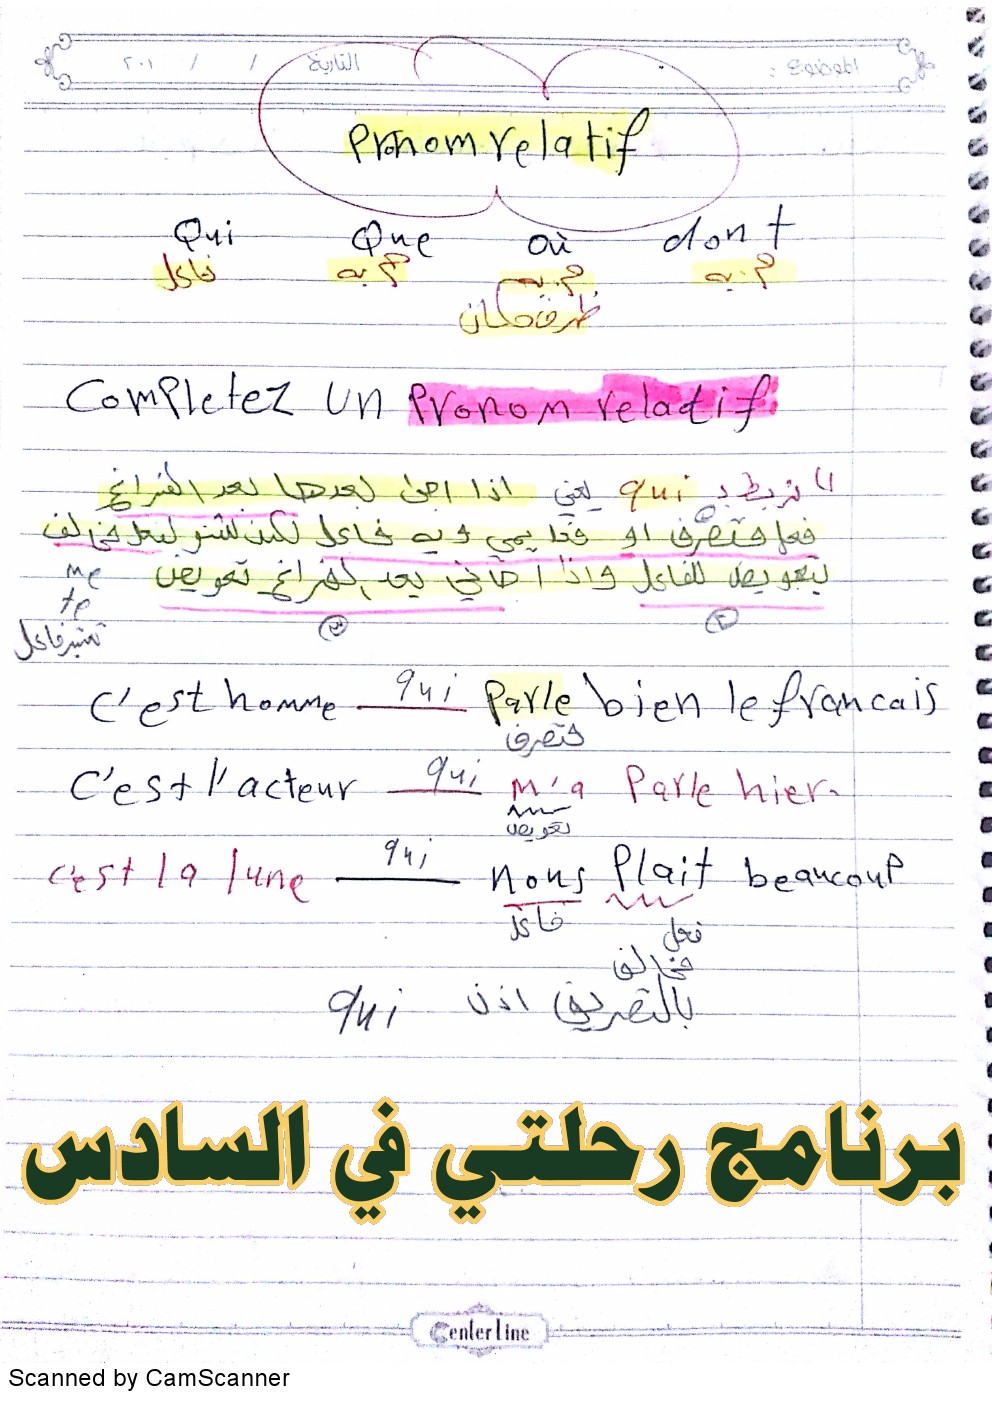 الموضوع : التاريخ / / ٢٠١
Pronom relatif
Qui Que où dont
فاعل م.به م.به م.به
ظرف مكان
Completez un pronom relatif:
١) نربط بـ qui يعني اذا اجى بعدها بعد الفراغ
فعل متصرف او قد يجي ويه فاعل لكن
لتعويض للفاعل واذا بعد الفراغ تعويض
me
te
تعتبر فاعل
C'est homme qui Parle bien le francais
متصرف
C'est l'acteur qui m'a Parle hier.
تعويض
c'est la lune qui nous Plait beaucoup
فاعل
فعل
مخالف
بالتصريف اذن qui
برنامج رحلتي في السادس
Centerline
Scanned by CamScanner